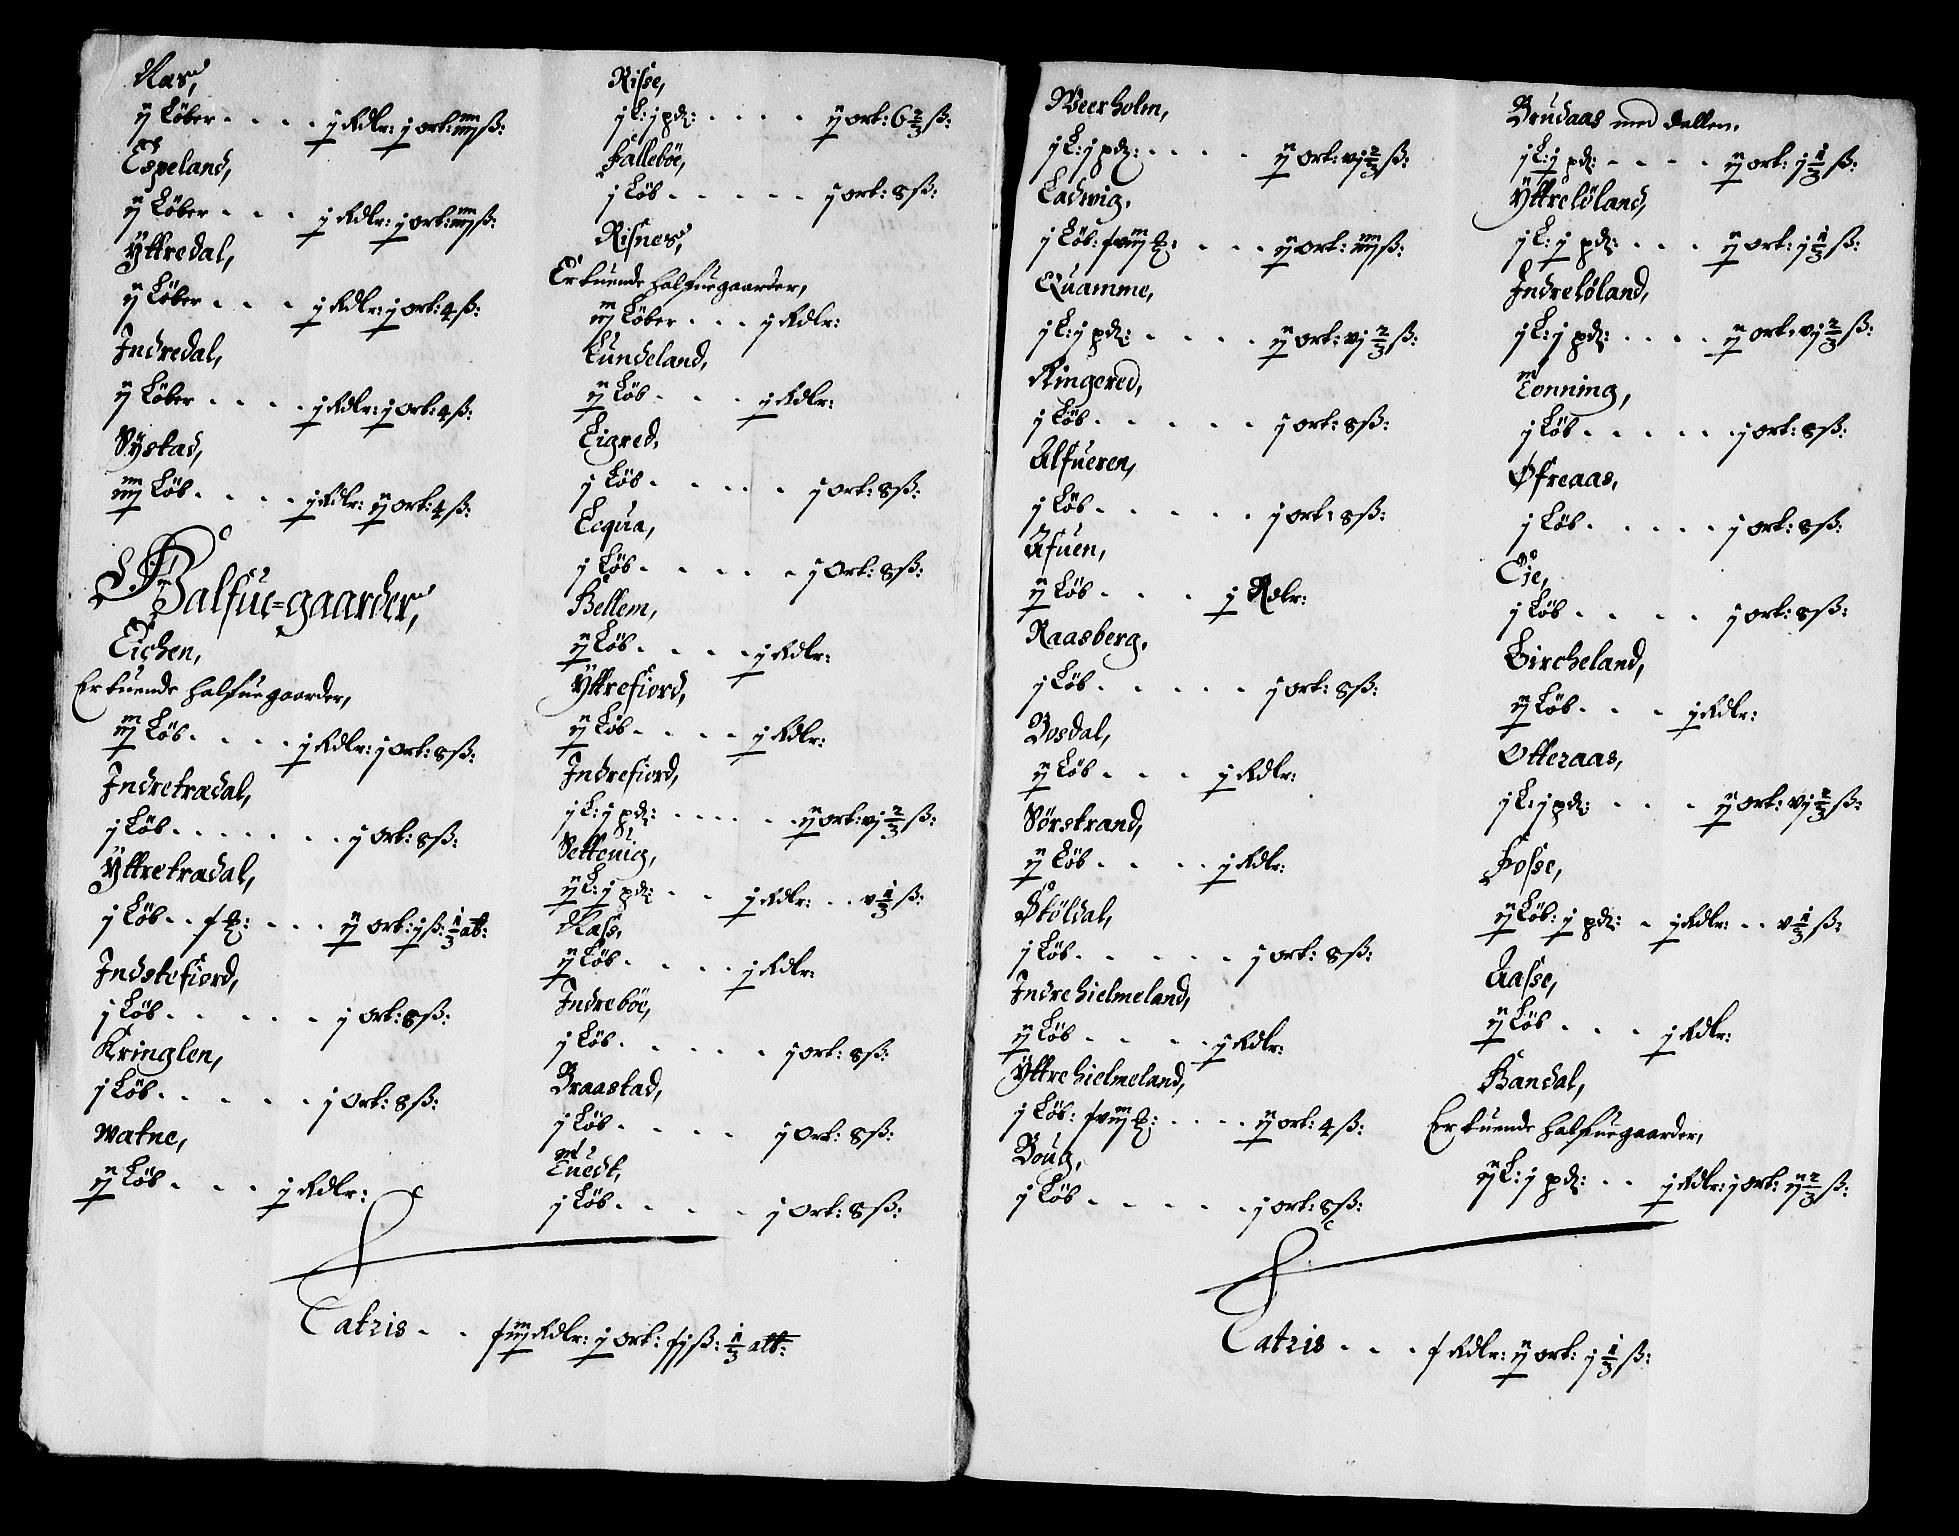 Aas,
ij Løber . . . . j Rdlr: j ort: iiij ß:
Espeland,
ij Løber . . . j Rdlr: j ort: iiij ß:
Yttredal,
ij Løber . . . j Rdlr: j ort: 4 ß:
Indredal,
ij Løber . . . . j Rdlr: j ort: 4 ß:
Systad,
iiij Løb . . . . j Rdlr: ij ort: 4 ß:
Halfue=gaarder,
Eichen,
Er tuende halfuegaarder,
iij Løb . . . . j Rdlr: j ort: 8 ß:
Indretradal,
j Løb . . . . . . . j ort: 8 ß:
Yttretradal,
j Løb . . . . . ij ort: j ß: 1/3 alb:
Indstefiord,
j Løb . . . . . j ort: 8 ß:
Kringlen,
j Løb . . . . . j ort: 8 ß:
Watne,
ij Løb . . . j Rdlr:
Risse,
j L: j pd: . . . . ij ort: 6 2/3 ß:
Hallebøe,
j Løb . . . . . j ort: 8 ß:
Risnes,
Er tuende halfuegaarder,
iij Løber . . . j Rdlr:
Lundeland,
ij Løb . . . j Rdlr:
Eigred,
j Løb . . . . . j ort: 8 ß:
Ecqua,
j Løb . . . . . j ort: 8 ß:
Hellem,
ij Løb . . . . j Rdlr:
Yttrefiord,
ij Løb . . . . j Rdlr:
Indrefiord,
j L: j pd: . . . . . ij ort: vj 2/3 ß:
Settenig,
ij L: j pd: . . j Rdlr: . . v 1/3 ß:
Aase,
ij Løb . . . . j Rdlr:
Indrebøe,
j Løb . . . . . j ort: 8 ß:
Braastad,
j Løb . . . . j ort: 8 ß:
Tuedt,
j Løb . . . . j ort: 8 ß:
Latris . . Rdlr: j ort: ß: 1/3 alb:
Weerholm,
j L: j pd: . . . . ij ort: vj 2/3 ß:
Ladwig,
j Løb: . . . ij ort: iiij ß:
Quamme,
j L: j pd: . . . . ij ort: vj 2/3 ß:
Ringered,
j Løb . . . . . j ort: 8 ß:
Alfueren,
j Løb . . . . . j ort: 8 ß:
Afuen,
ij Løb . . . j Rdlr:
Raasberg,
j Løb . . . . . j ort: 8 ß:
Bosdal,
ij Løb . . . j Rdlr:
Sørstrand,
ij Løb . . . . j Rdlr:
Skøldal,
j Løb . . . . . j ort: 8 ß:
Indrehielmeland,
ij Løb . . . . j Rdlr:
Yttrehielmeland,
j Løb: . . . . ij ort: 4 ß:
Boug,
j Løb . . . . . j ort: 8 ß:
Brudaas med dallen,
j L: j pd: . . . . ij ort: j 1/3 ß:
Yttreløland,
j L: j pd: . . . ij ort: j 1/3 ß:
Indreløland,
j L: j pd: . . . . ij ort: vj 2/3 ß:
Tonning,
j Løb . . . . . j ort: 8 ß:
Øfreaas,
j Løb . . . . . j ort: 8 ß:
Eje,
j Løb . . . . j ort: 8 ß:
Bircheland,
ij Løb . . . j Rdlr:
Otteraas,
j L: j pd: . . . ij ort: vj 2/3 ß:
Fosse,
ij Løb: j pd: . j Rdlr: . . v 1/3 ß:
Aasse,
ij Løb . . . j Rdlr:
Handal,
Er tuende halfuegaarder,
ij L: j pd: . . j Rdlr: j ort: ij 2/3 ß:
Latris . . . Rdlr: ij ort: j 1/3 ß: